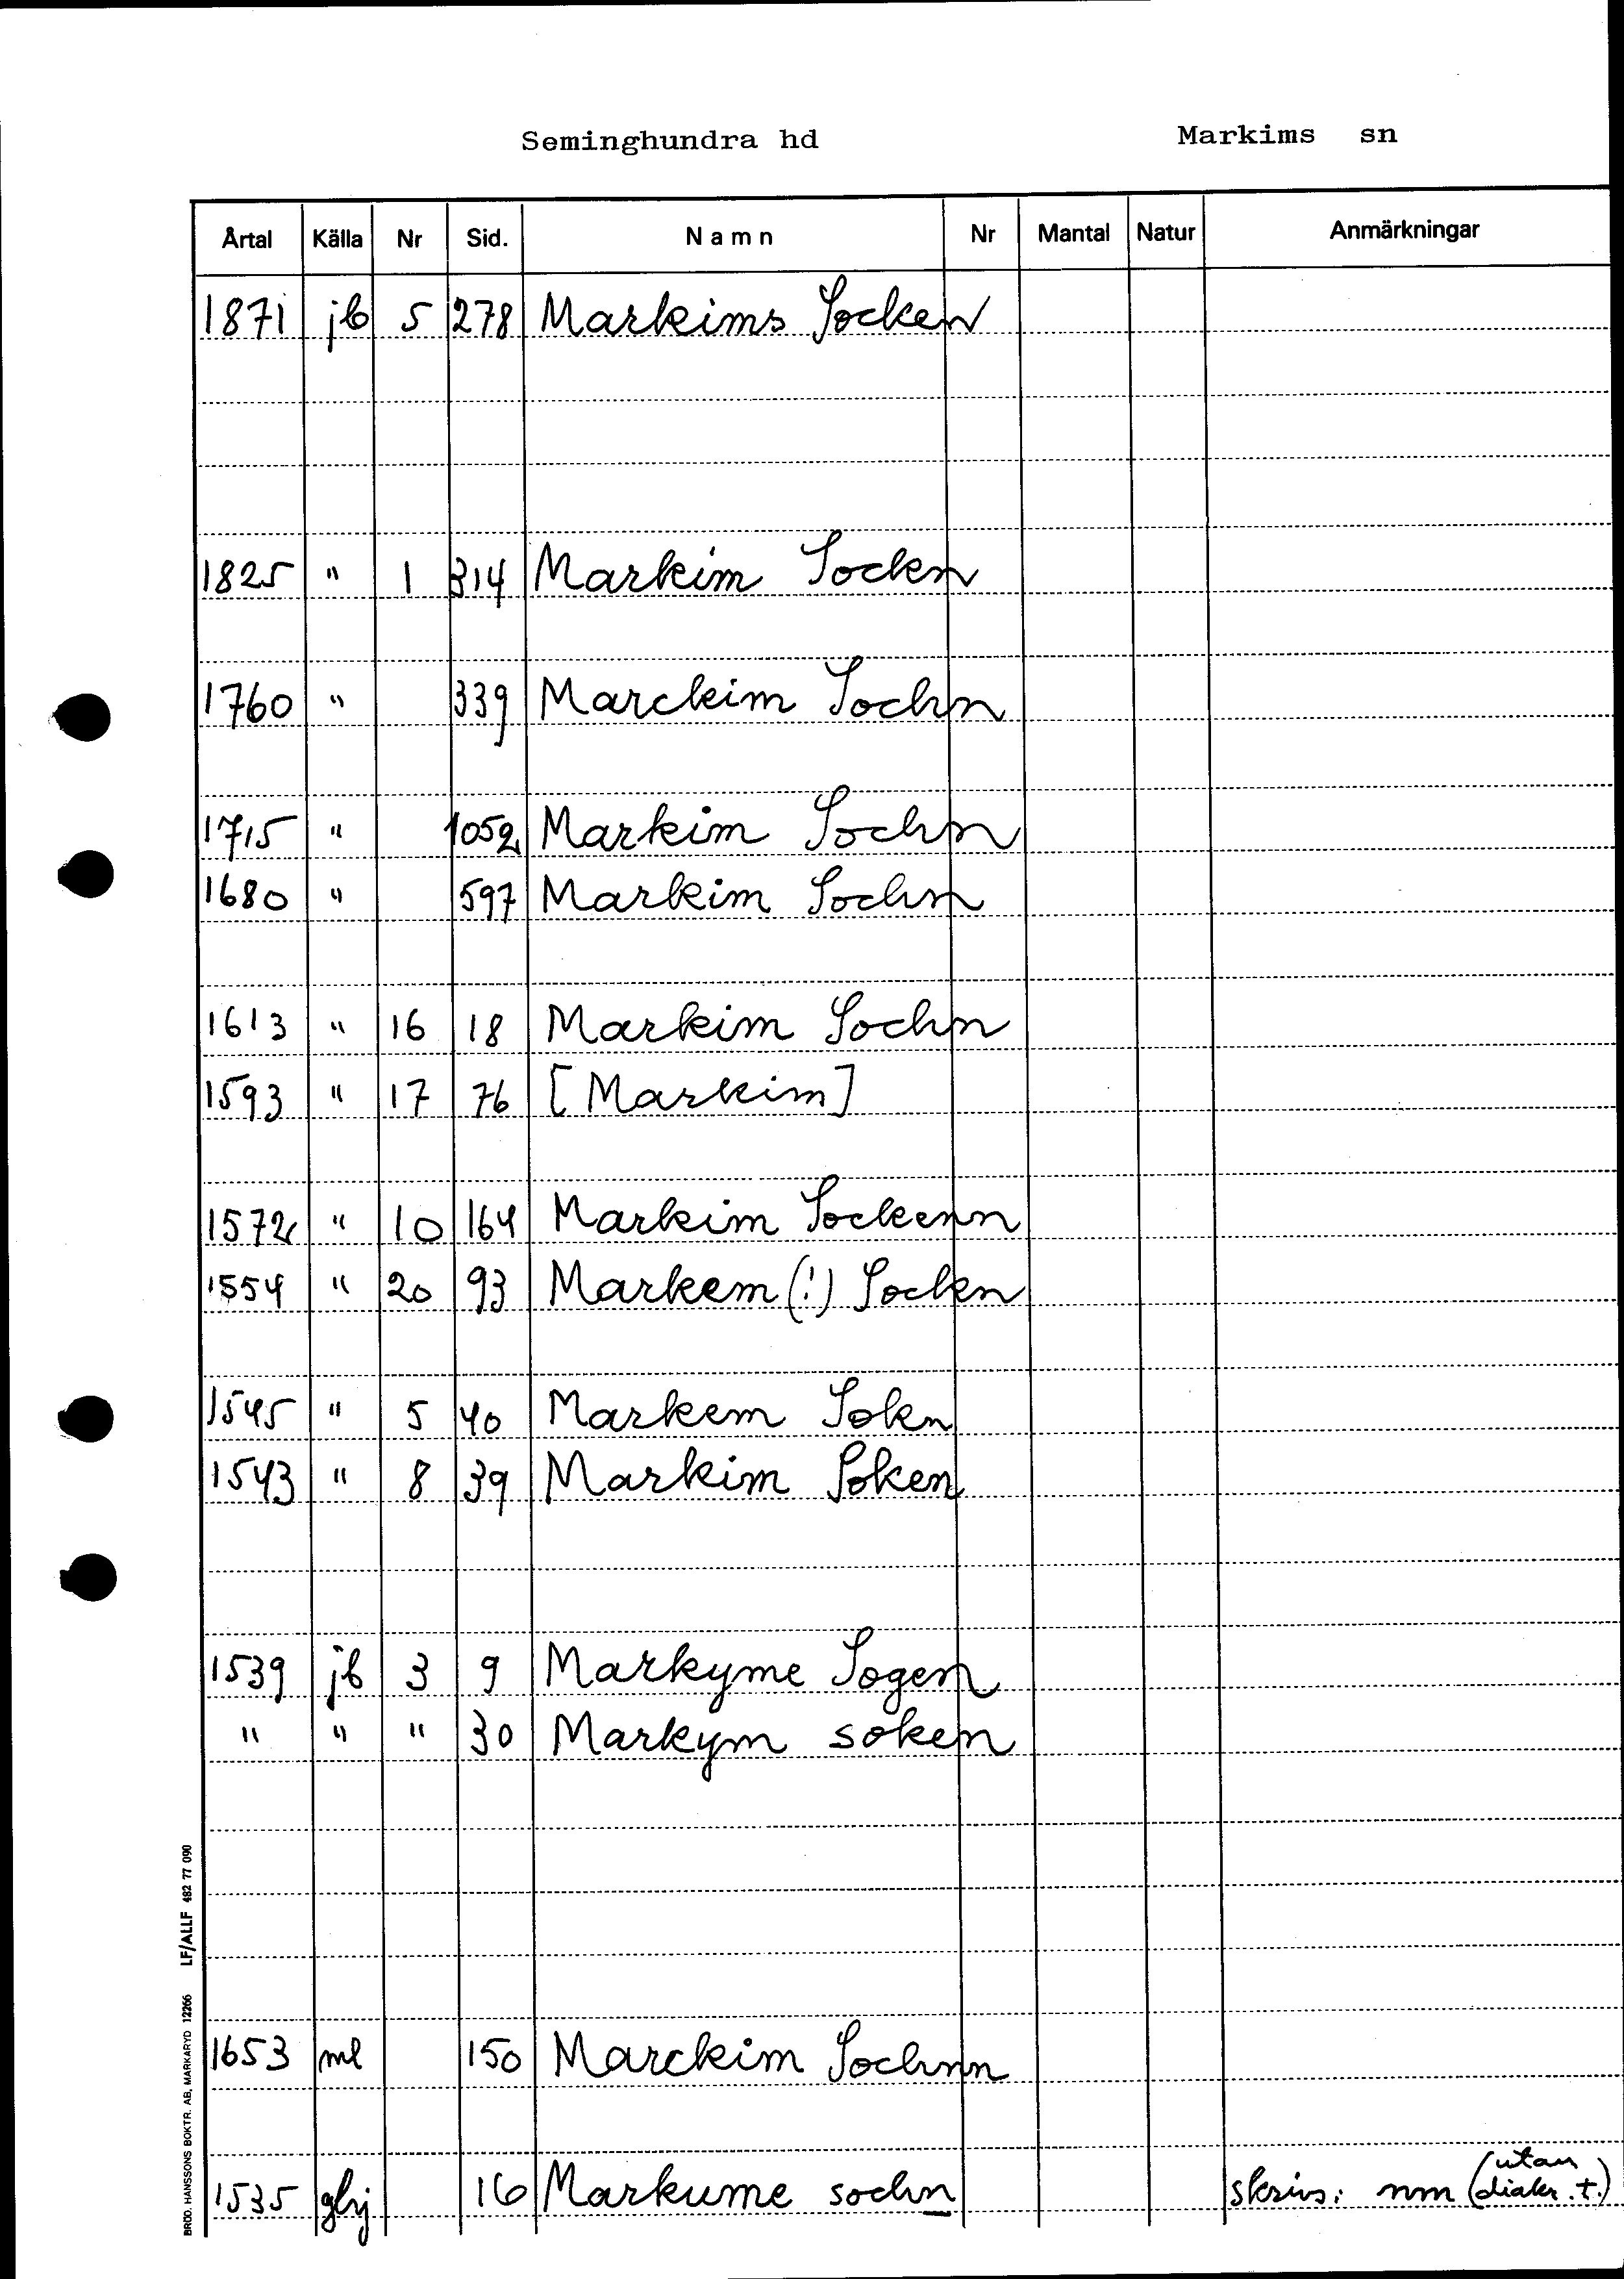 Seminghundra hd Markims sn
Årtal Källa Nr Sid. Namn Nr Mantal Natur Anmärkningar
1871 jb 5 278 Markims Socken
1825 " 1 314 Markim Sockn
1760 " 339 Marckim Sochn
1715 " 1052 Markim Sochn
1680 " 597 Markim Sochn
1613 " 16 18 Markim Sochn
1593 " 17 76 [Markim]
1572 " 10 164 Markim Sockenn
1554 " 20 93 Markem (!) Sockn
1545 " 5 40 Markem Sokn
1543 " 8 39 Markim Soken
1539 jb 3 9 Markyme Sogen
" " " 30 Markym soken
1653 ml 150 Marckim Sochnn
1535 ghj 16 Markume sochn skrivs: nm (utan diakr. t.)
BRÖD. HANSSONS BOKTR. AB, MARKARYD 12266 LF/ALLF 482 77 090